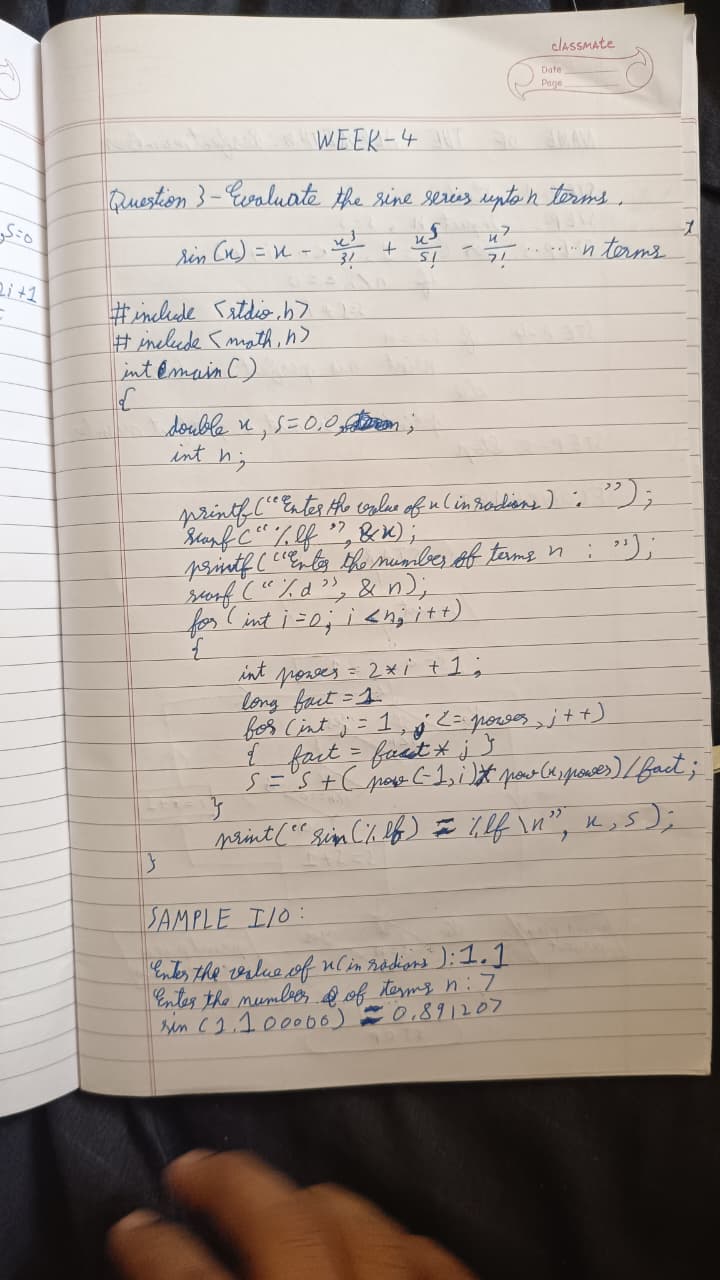 classmate
Date
Page
WEEK-4
Question 3 - Evaluate the sine series upto n terms.
sin (x) = x - x³/3! + x⁵/5! - x⁷/7! ...... n terms
, s=0
2i+1
#include <stdio.h>
#include <math.h>
int main()
{
double x, s=0.0, ;
int n;
printf(“Enter the value of x (in radians) : ”);
scanf(“%lf”, &x);
printf(“Enter the number of terms n : ”);
scanf(“%d”, &n);
for(int i=0; i<n; i++)
{
int power = 2*i +1;
long fact = 1
for (int j = 1, j <= power, j++)
{ fact = fact * j }
s = s + ( pow (-1,i)* pow(x,power)/fact;
}
print(“sin(%lf) = %lf \n”, x, s);
}
SAMPLE I/O :
Enter the value of x (in radians): 1.1
Enter the number of terms n : 7
sin (1.100000) = 0.891207